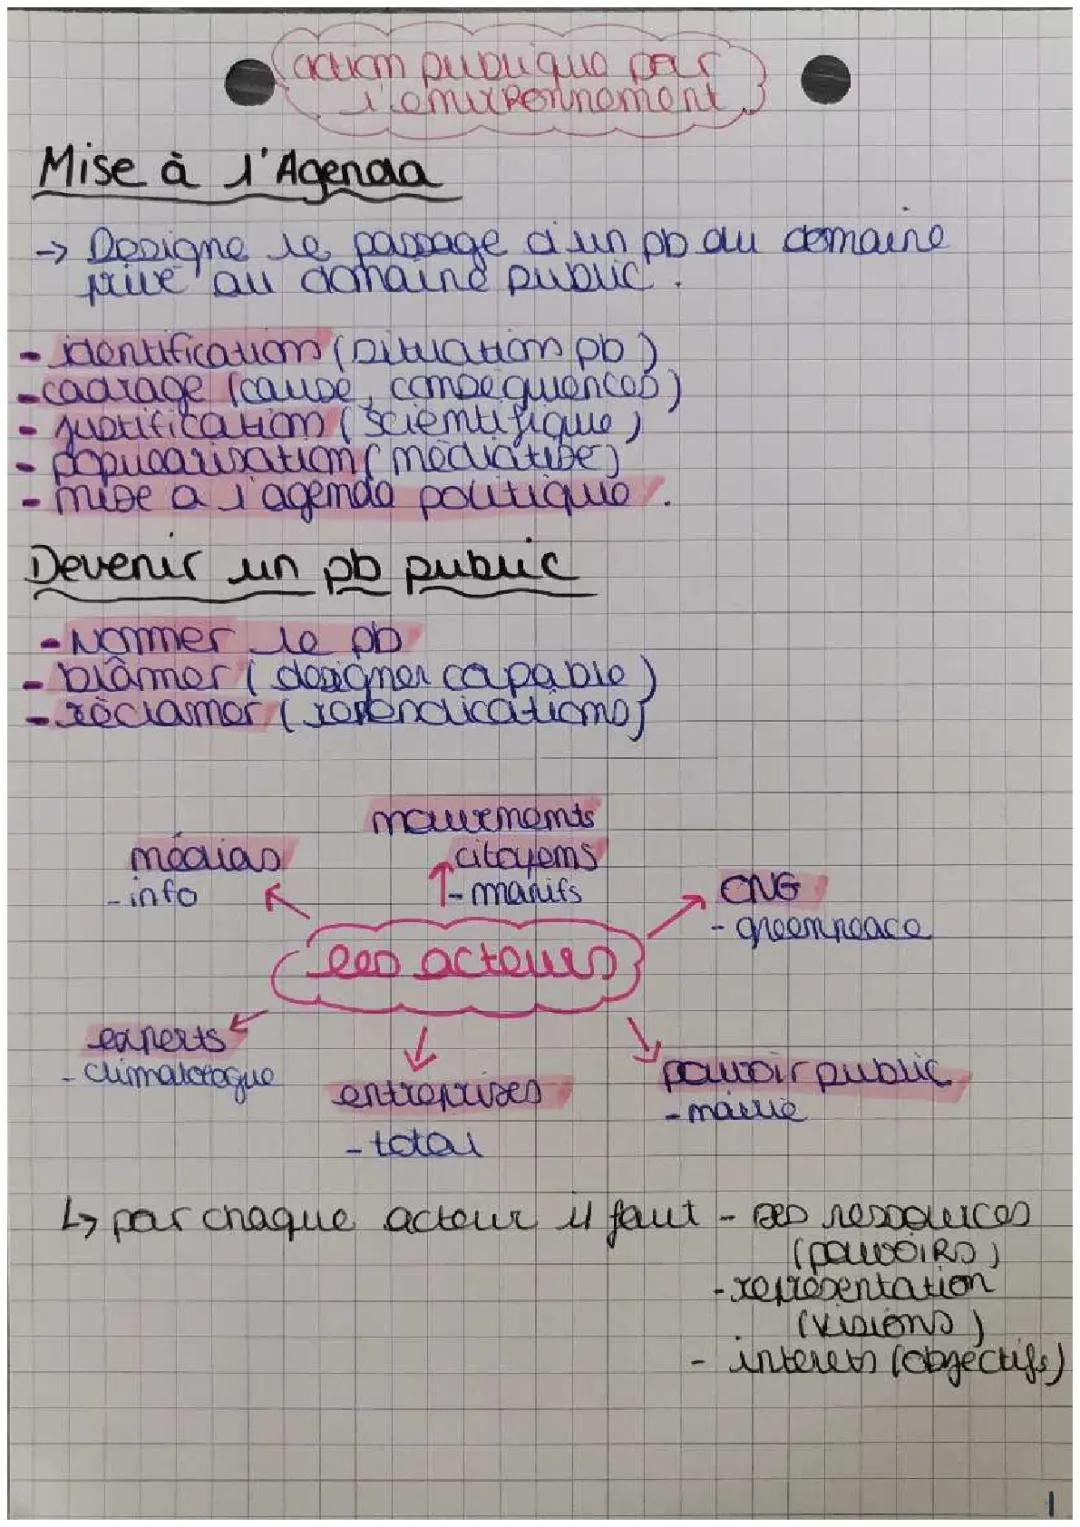 action publique par
l'environnement
Mise à l'Agenda
→ Designe le passage d'un pb du domaine
privé au domaine public.
- identification (situation pb)
- cadrage (cause, conséquences)
- justification (scientifique)
- popularisation (médiatise)
- mise a l'agenda politique.
Devenir un pb public
- Nommer le pb
- blâmer (designer capable)
- réclamer (revendications)
mouvements
citoyens
- manifs
médias
- info
ONG
- greenpeace
les acteurs
experts
- climatologue
entreprises
- total
pouvoir public
- mairie
↳ par chaque acteur il faut - ses ressources
(pouvoirs)
- représentation
(visions)
- interets (objectifs)
1